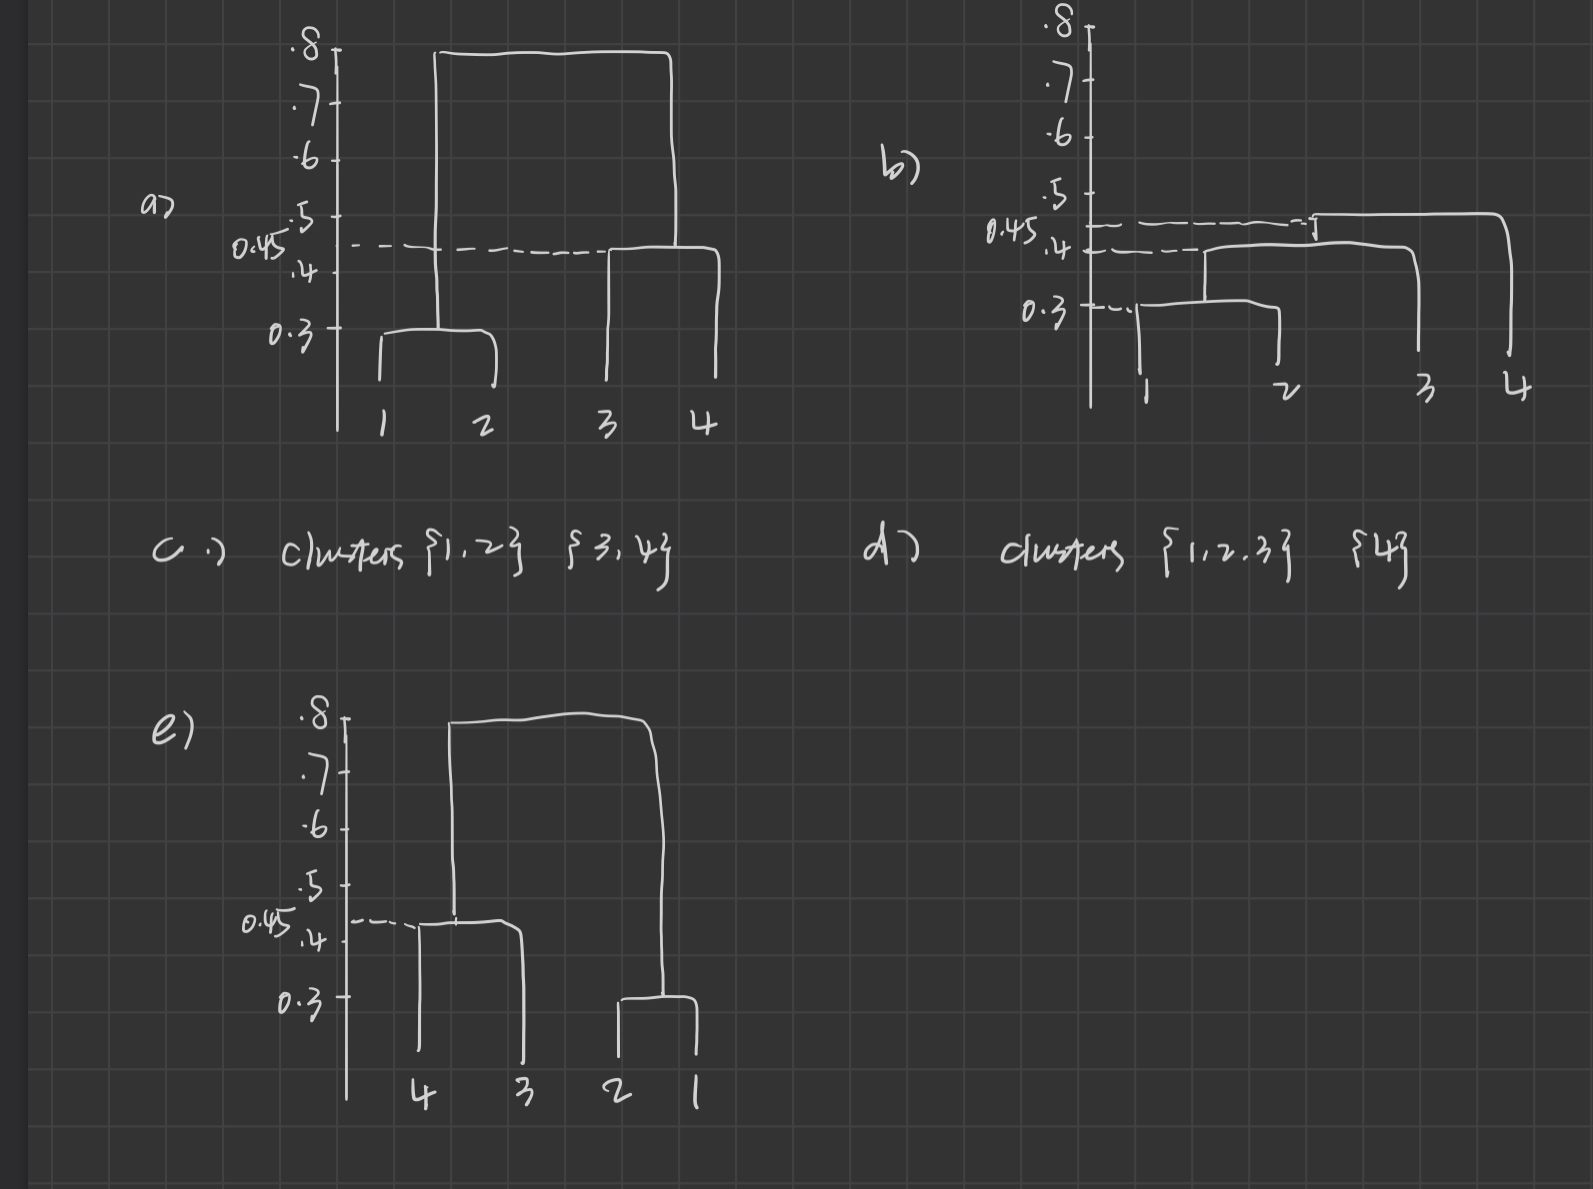 a)
.8
.7
.6
.5
0.45
.4
0.3
1 2 3 4
b)
.8
.7
.6
.5
0.45
.4
0.3
1 2 3 4
c.) clusters {1,2} {3,4}
d) clusters {1,2.3} {4}
e)
.8
.7
.6
.5
0.45
.4
0.3
4 3 2 1